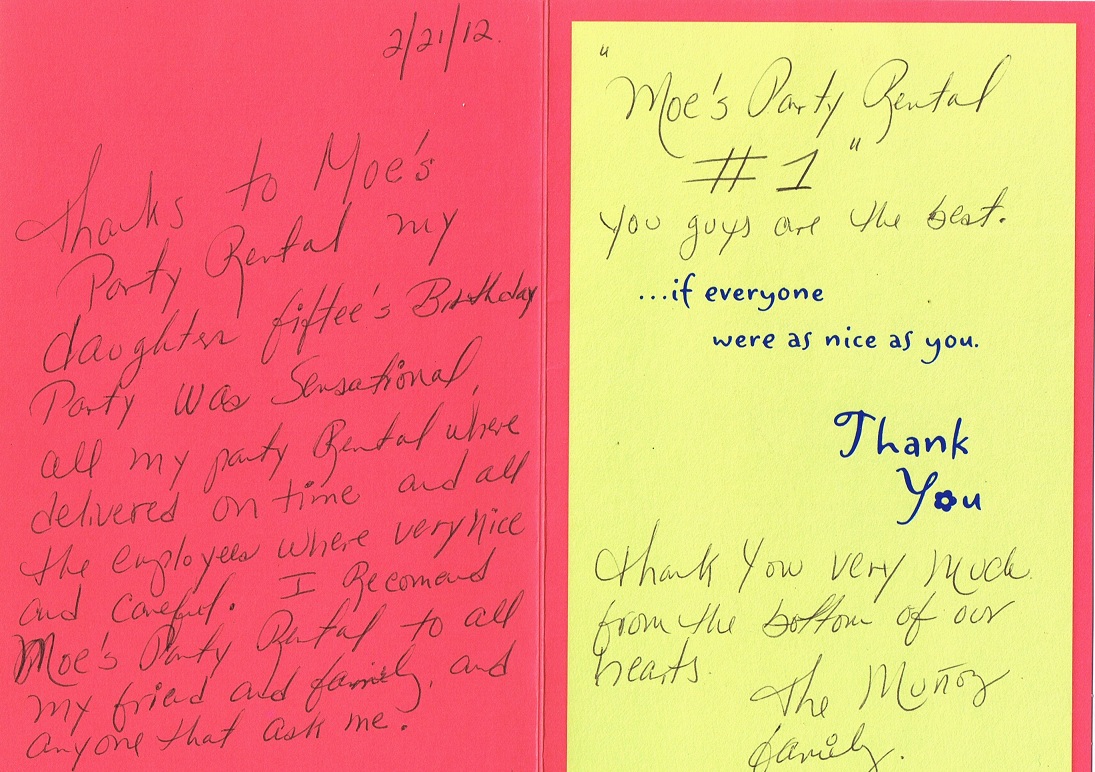 2/21/12.
thanks to Moe's
Party Rental my
daughter fiftee's Birthday
Party was Sensational,
all my party Rental where
delivered on time and all
the employees where very nice
and careful. I Recomend
Moe's Party Rental to all
my friend and family, and
anyone that ask me.
"Moe's Party Rental
#1"
you guys are the best.
...if everyone
were as nice as you.
Thank
You
thank You very much
from the bottom of our
hearts.
the Muñoz
family.